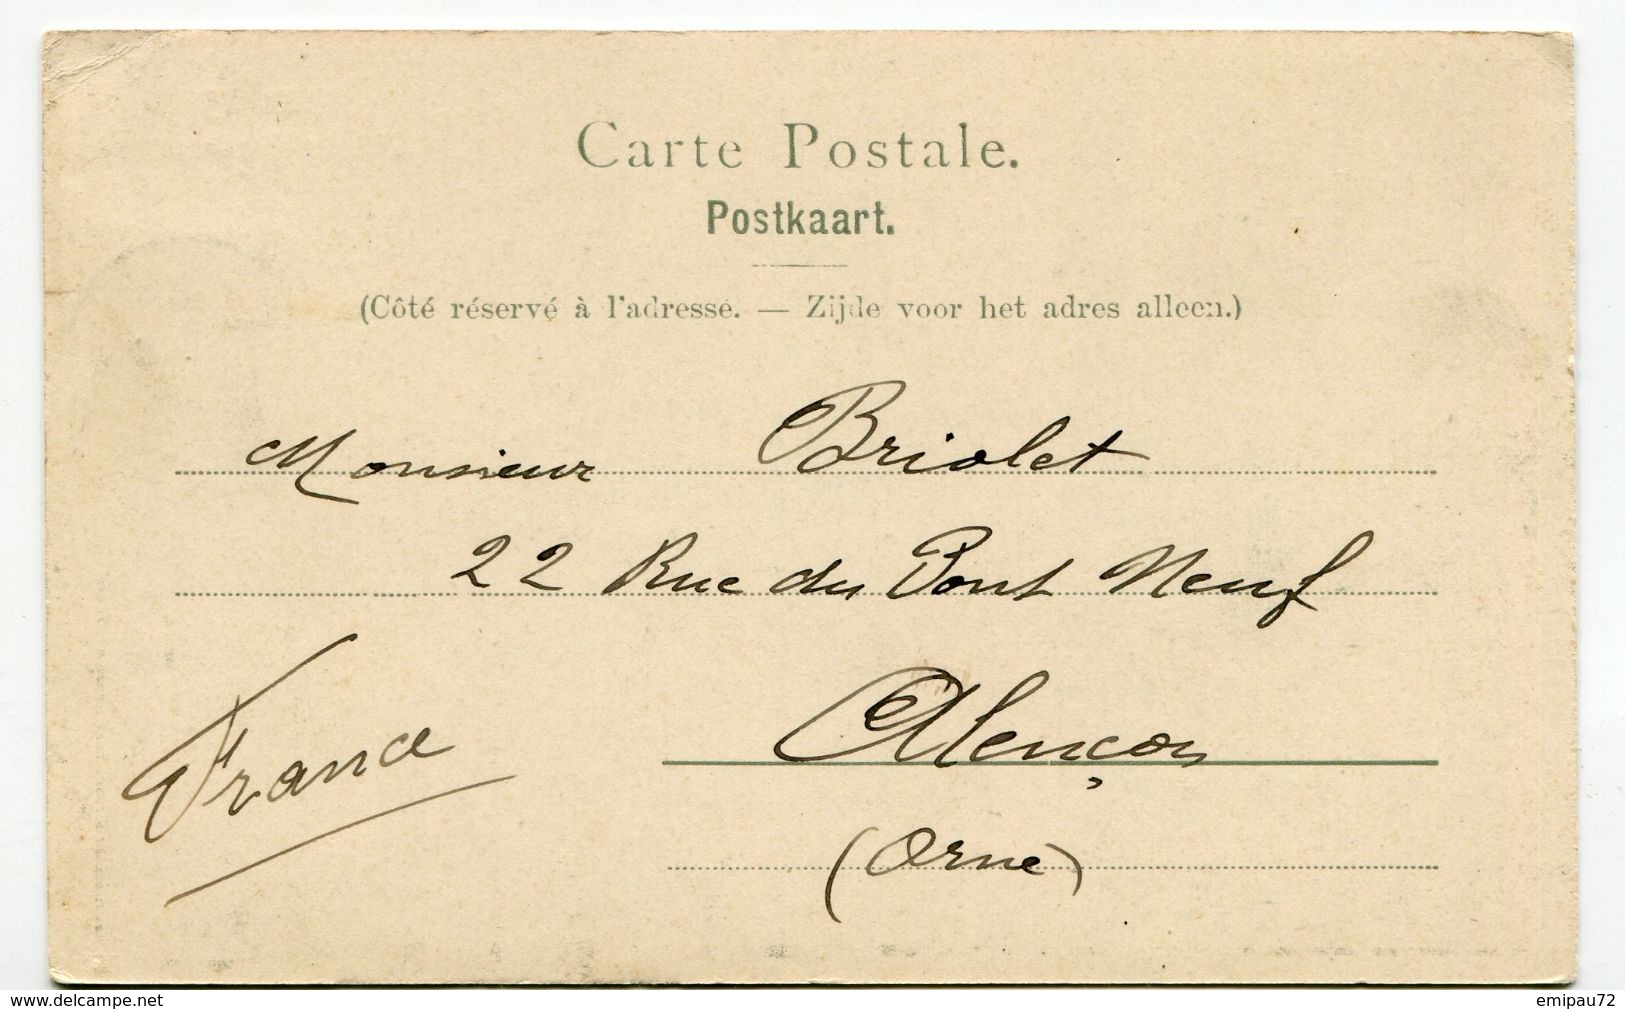 Carte Postale.
Postkaart.
(Côté réservé à l'adresse. — Zijde voor het adres alleen.)
Monsieur Briolet
22 Rue du Pont Neuf
Alençon
(Orne)
France
www.delcampe.net
emipau72